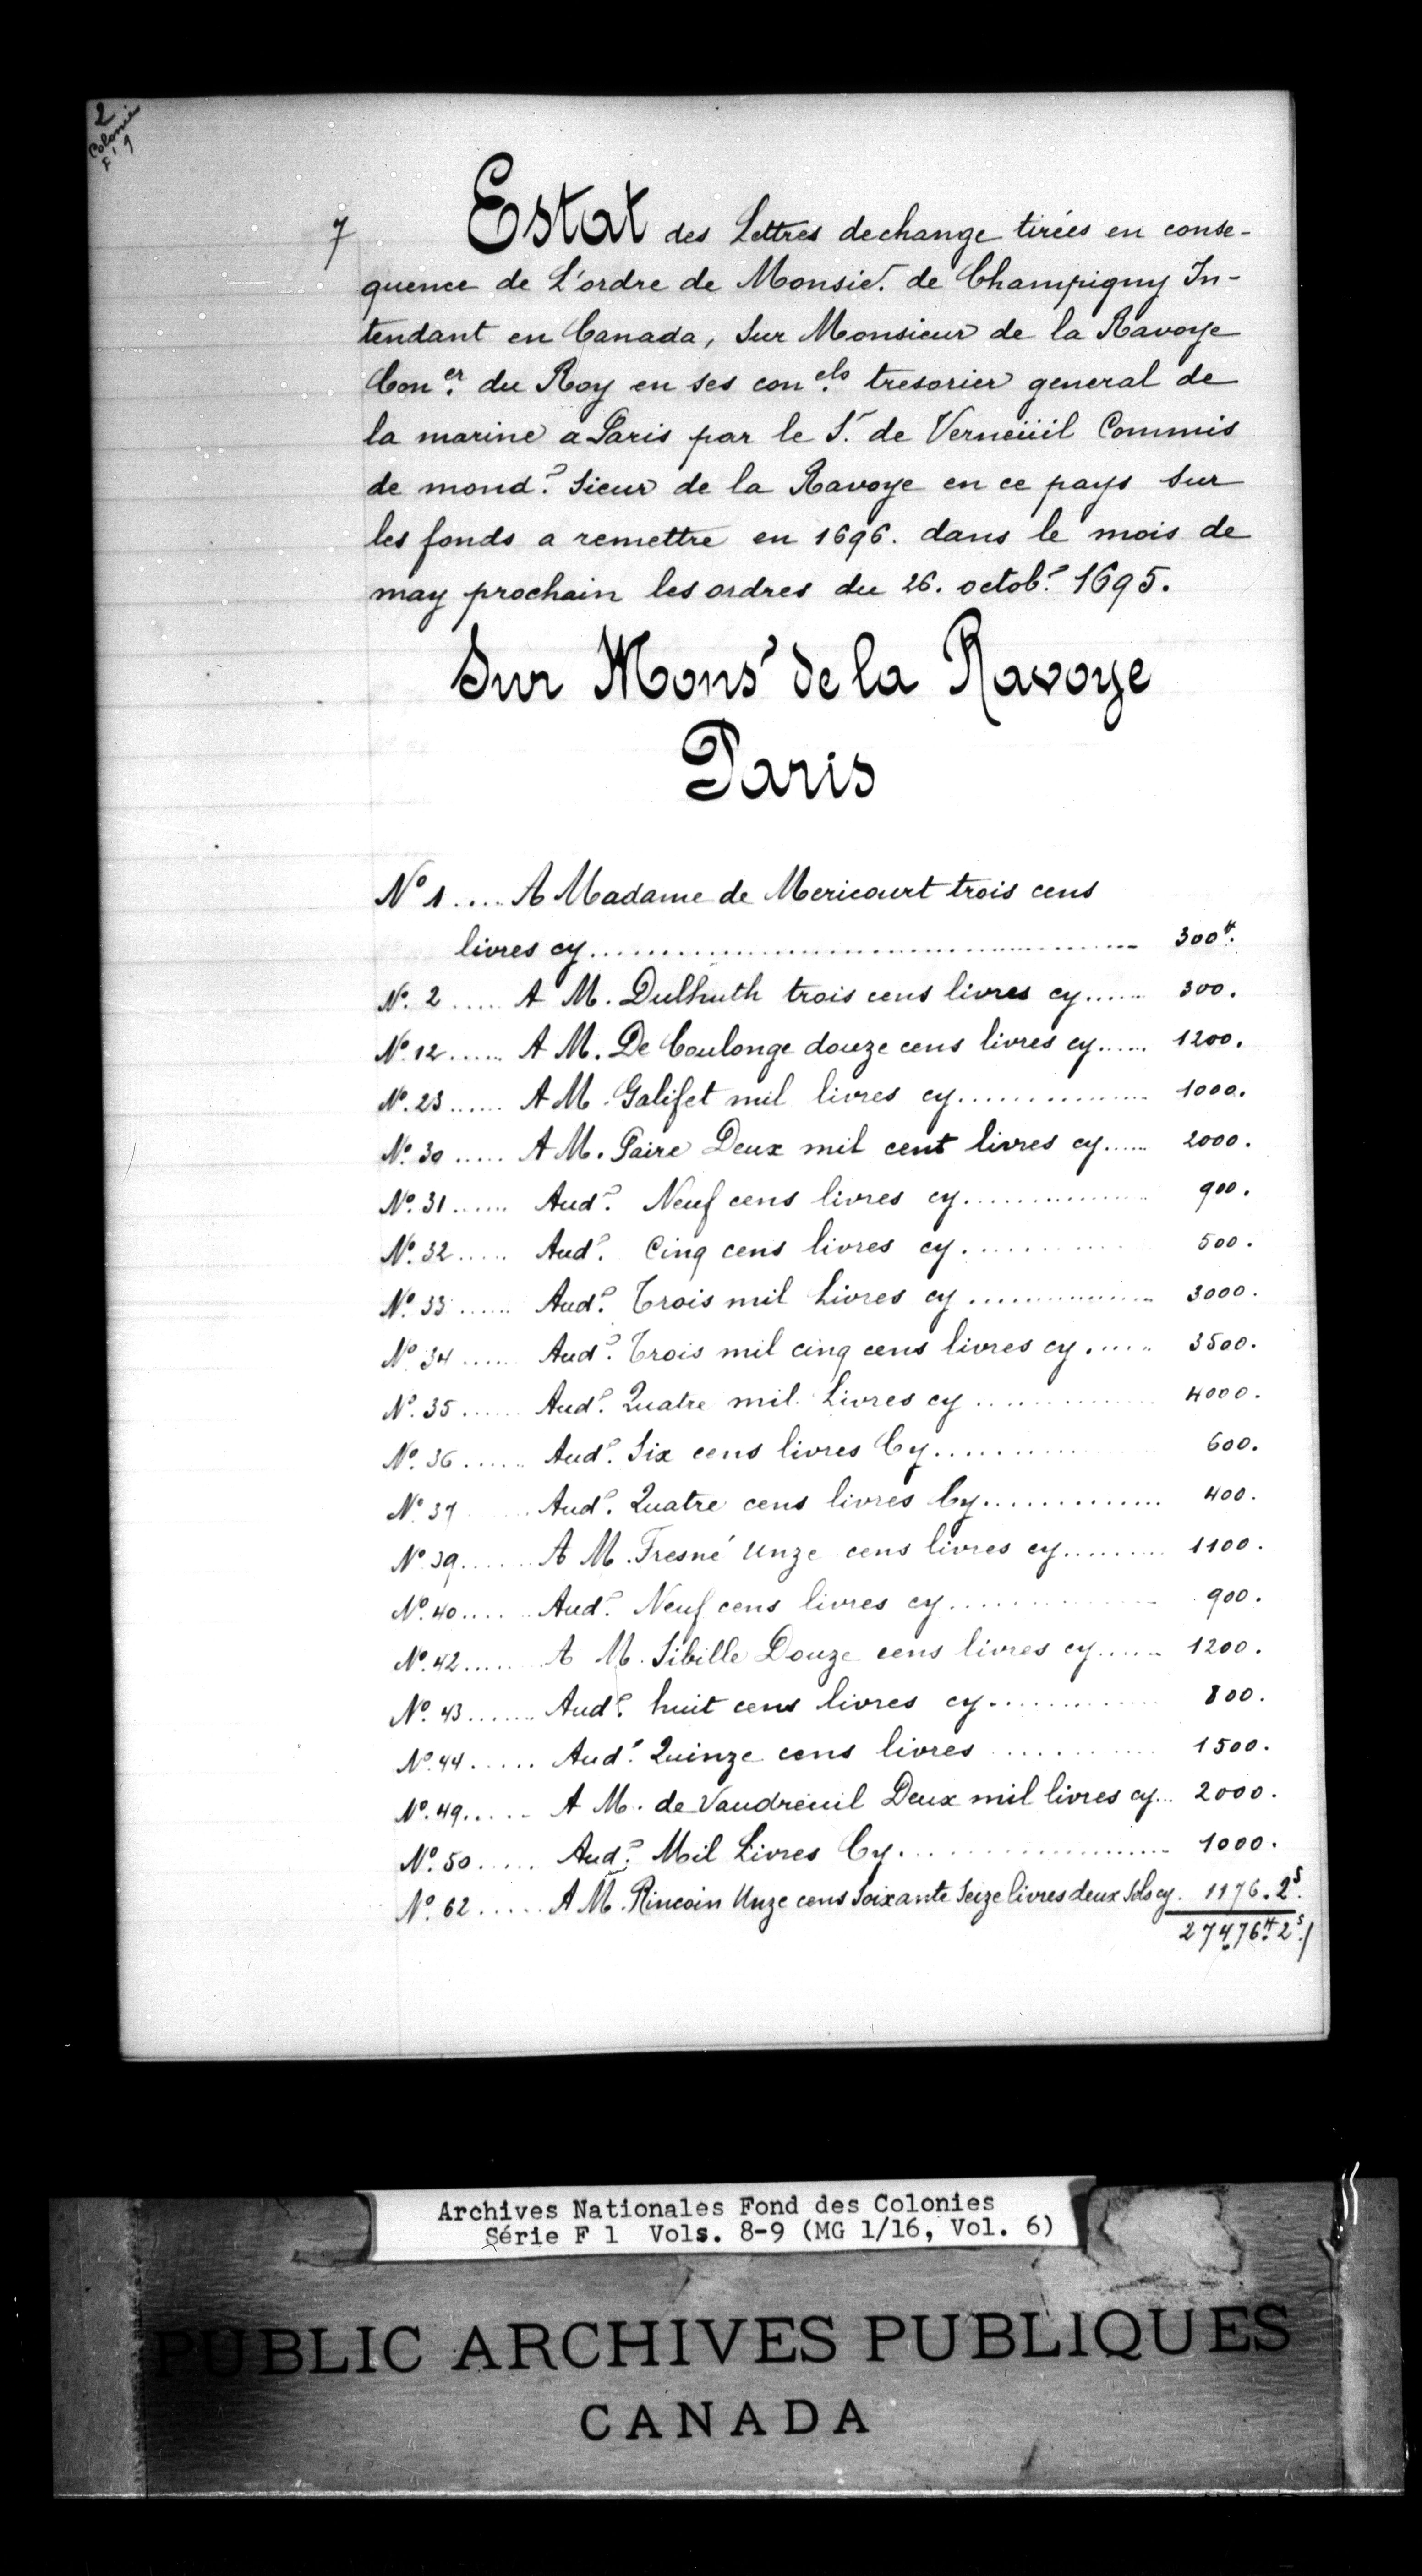 2
Colonies
F1 9
7
Estat des Lettres dechange tirées en conse-
quence de L'ordre de Monsier. de Champigny In-
tendant en Canada, Sur Monsieur de la Ravoye
Con.er du Roy en ses con.els tresorier general de
la marine a Paris par le S.r de Verneüil Commis
de mond.? Sieur de la Ravoye en ce pays Sur
les fonds a remettre en 1696. dans le mois de
may prochain les ordres du 26. octob.? 1695.
Sur Mons' de la Ravoye
Paris
No 1 .... A Madame de Mericourt trois cens
livres cy .................... 300#.
No. 2 ..... A M. Dulhuth trois cens livres cy ...... 300.
No. 12 ...... A M. De Coulonge douze cens livres cy ...... 1200.
No. 23 ...... A M. Galifet mil livres cy ............... 1000.
No. 30 ..... A M. Paire Deux mil cent livres cy ...... 2000.
No. 31 ...... Aud.? Neuf cens livres cy ............... 900.
No. 32 ..... Aud.? Cinq cens livres cy ............ 500.
No. 33 ...... Aud.? Trois mil Livres cy ............... 3000.
No. 34 ...... Aud.? Trois mil cinq cens livres cy ...... 3500.
No. 35 ...... Aud.? Quatre mil Livres cy ............... 4000.
No. 36 ...... Aud.? Six cens livres Cy ............ 600.
No. 37 ...... Aud.? Quatre cens livres Cy ............. 400.
No. 39 ...... A M. Fresné Unze cens livres cy ......... 1100.
No. 40 ..... Aud.? Neuf cens livres cy ............... 900.
No. 42 ...... A M. Sibille Douze cens livres cy ...... 1200.
No. 43 ....... Aud.? huit cens livres cy ............ 800.
No. 44 ...... Aud.? Quinze cens livres ............ 1500.
No. 49 ..... A M. de Vaudreuil Deux mil livres cy ... 2000.
No. 50 ..... Aud.? Mil Livres Cy .................... 1000.
No. 62 ..... A M. Rincoin Unze cens Soixante Seize livres deux Sols cy. 1176.2s.
27476#.2s./
Archives Nationales Fond des Colonies
Série F 1 Vols. 8-9 (MG 1/16, Vol. 6)
PUBLIC ARCHIVES PUBLIQUES
CANADA